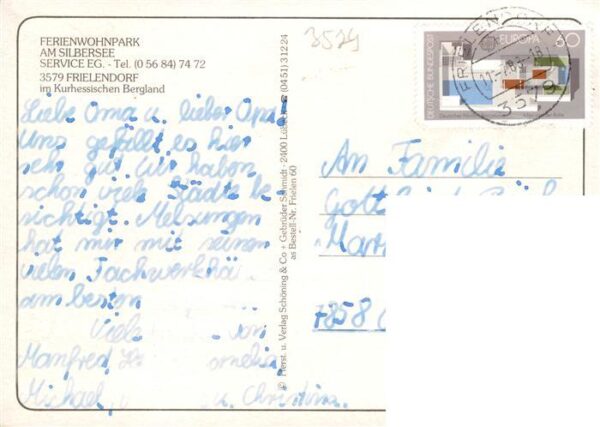 FERIENWOHNPARK
AM SILBERSEE
SERVICE EG. - Tel. (0 56 84) 74 72
3579 FRIELENDORF
im Kurhessischen Bergland
3579
Liebe Oma u. lieber Opa!
Uns gefällt es hier
sehr gut. Wir haben
schon viele Städte be
sichtigt. Melsungen
hat mir mit seinen
vielen Fachwerkhä
am besten
Viele
Manfred
Michael u. Christina.
© Herst. u. Verlag Schöning & Co + Gebrüder Schmidt · 2400 Lübeck (04 51) 3 12 24
Bestell-Nr. Frielen 60
DEUTSCHE BUNDESPOST
EUROPA
60
3579
An Familie
7858